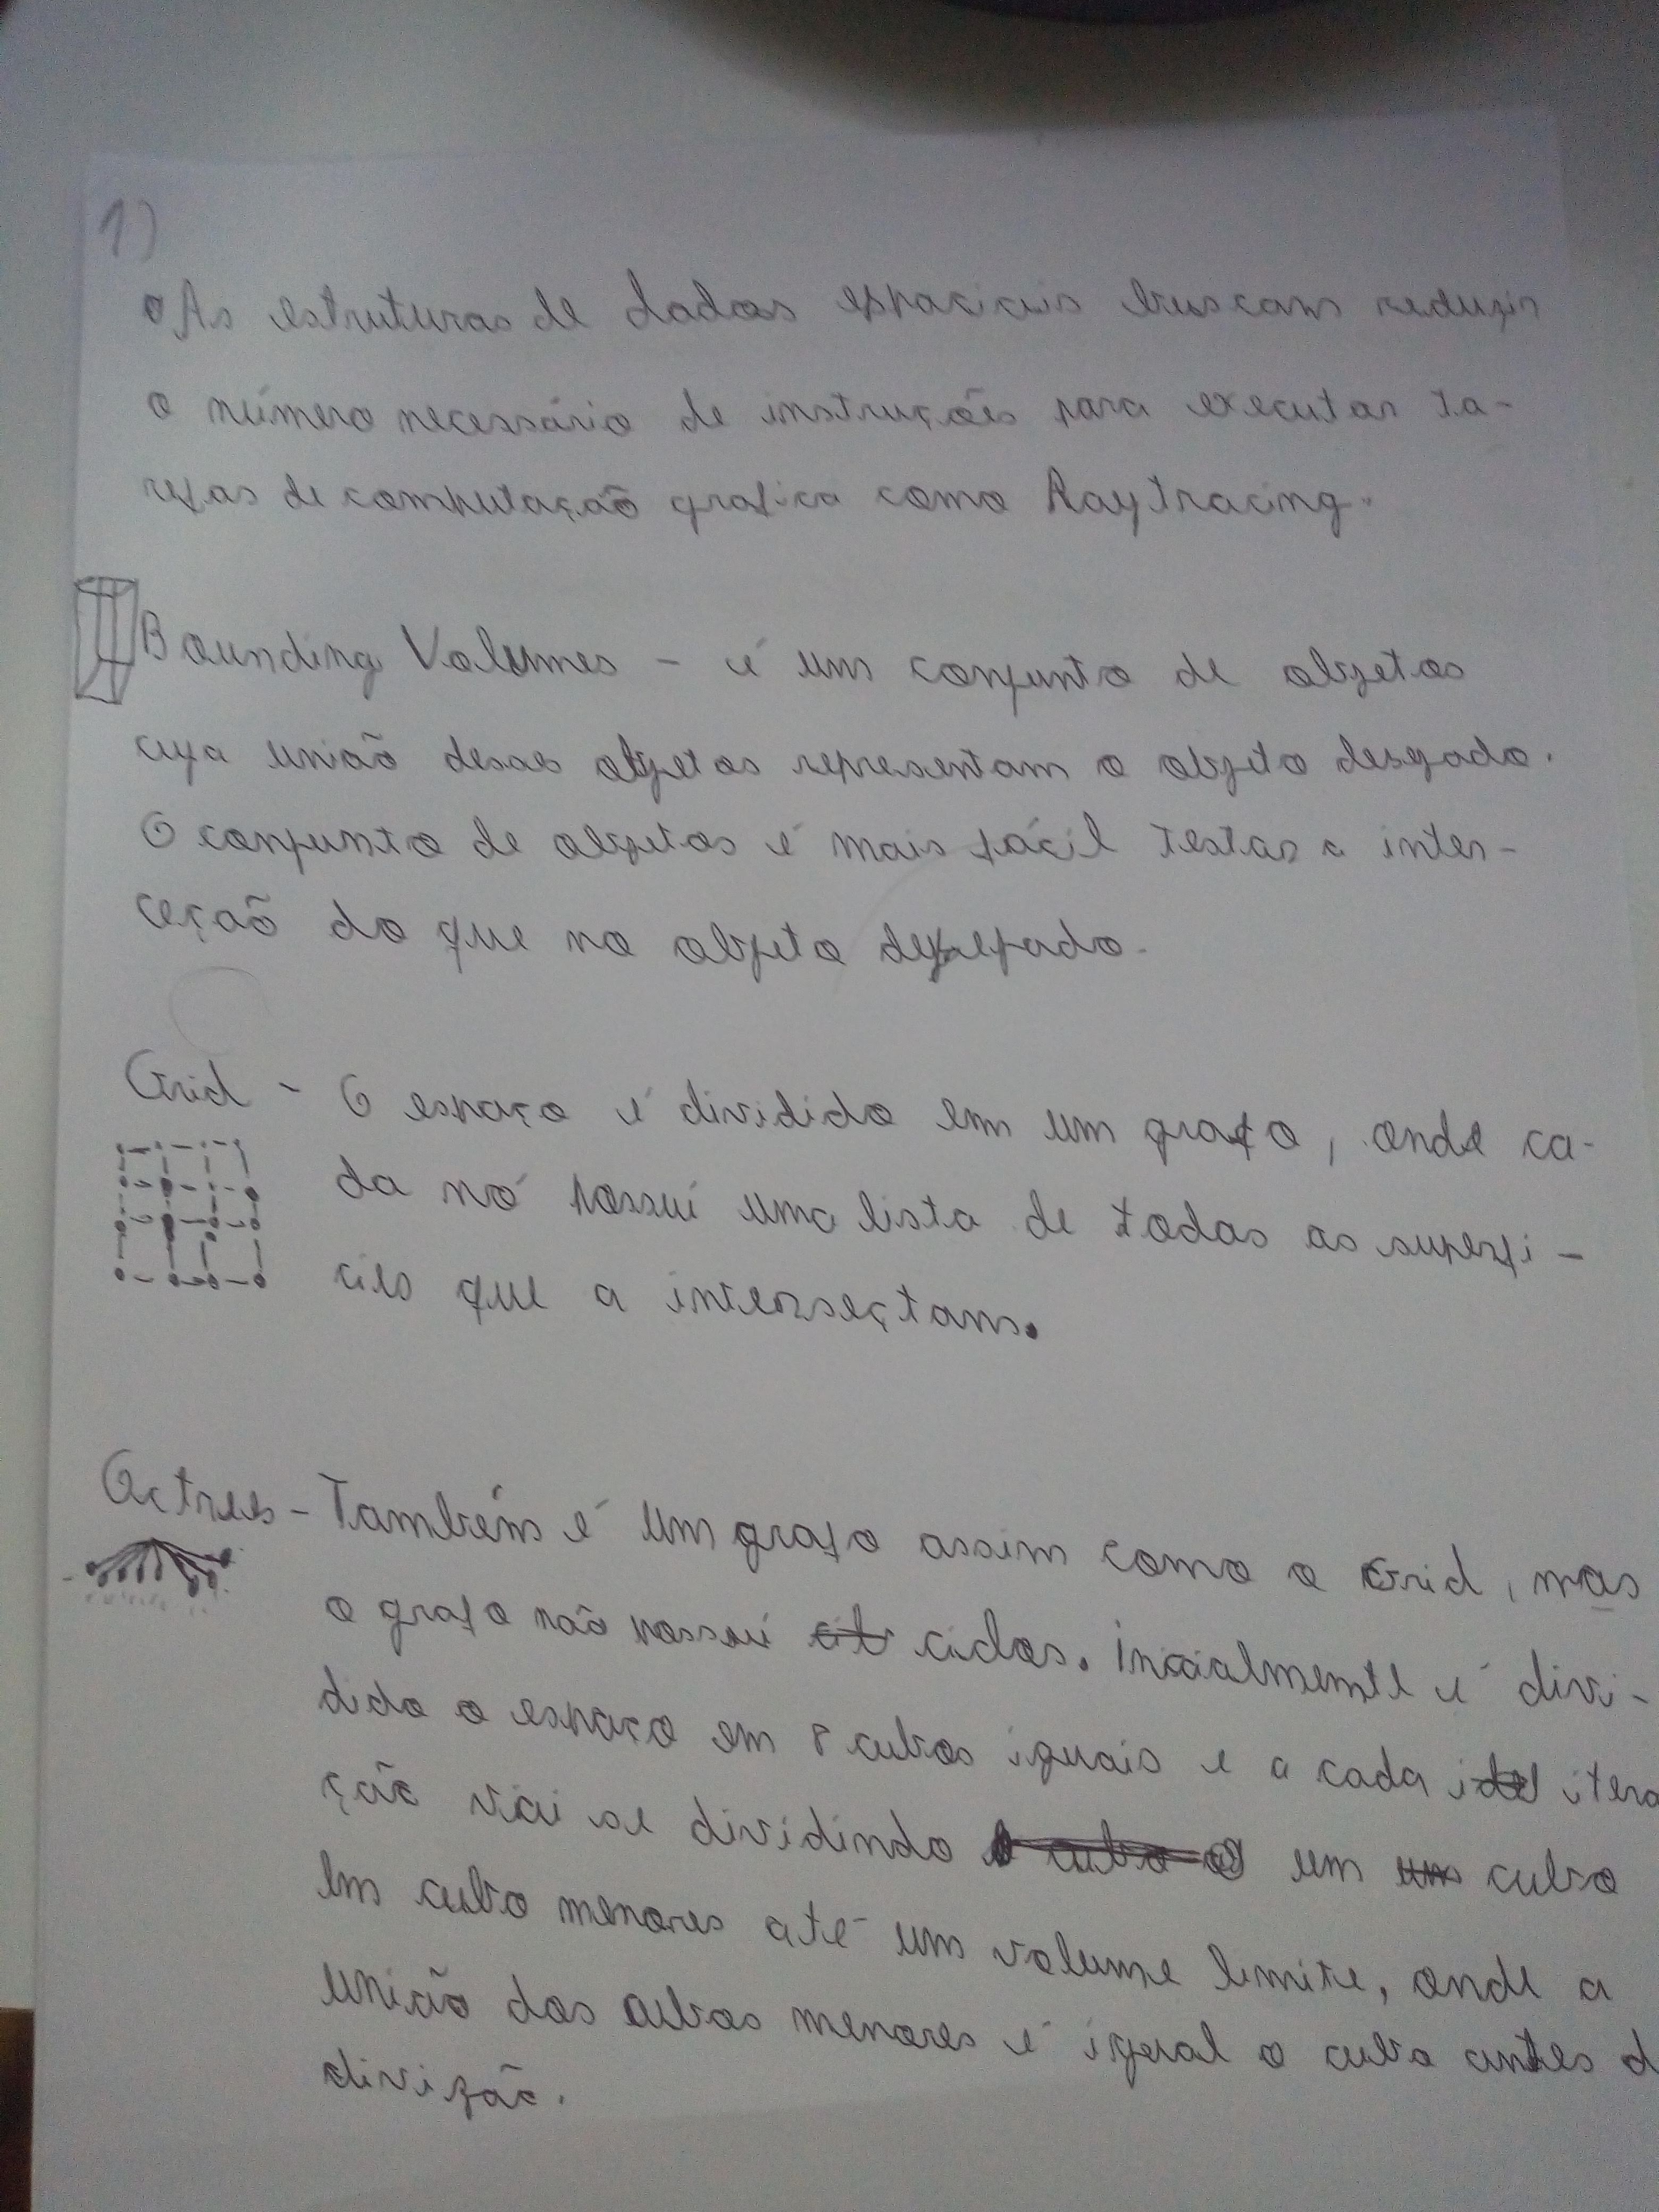 1)
As estruturas de dados espaciais buscam reduzir
o número necessário de instruções para executar ta-
refas de computação grafica como Raytracing.
Bounding Volumes - é um conjunto de objetos
cuja união desses objetos representam o objeto desejado.
O conjunto de objetos é mais fácil testar a inter-
ceção do que no objeto desejado.
Grid - O espaço é dividido em um grafo, onde ca-
da nó possui uma lista de todas as superfi-
cies que a interseçtam.
Octrees - Também é um grafo assim como o Grid, mas
o grafo não possui ciclos. Inicialmente é divi-
dido o espaço em 8 cubos iguais e a cada itera
ção vai se dividindo um cubo
em cubo menores até um volume limite, onde a
união dos cubos menores é igual o cubo antes d
divizão.